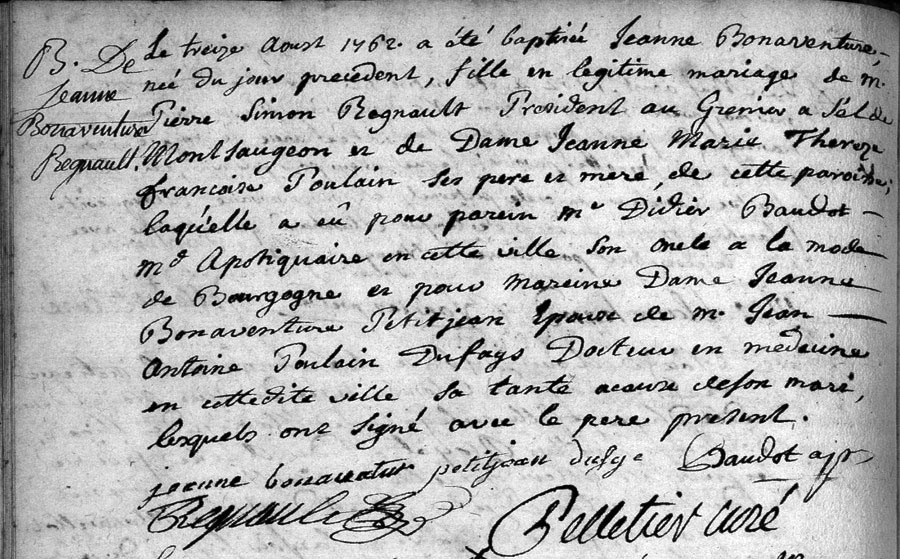 B. De
Jeanne
Bonaventure
Regnault.
Le treize Aoust 1762. a été baptisée Jeanne Bonaventure
née du jour precedent, fille en legitime mariage de m.
Pierre Simon Regnault President au Grenier a Sel de
Montsaugeon et de Dame Jeanne Marie Thereze
françoise Poulain ses pere et meré, de cette paroisse,
laquelle a eû pour parein mr Didier Baudot
md Apotiquaire en cette ville son oncle a la mode
de Bourgogne et pour mareine Dame Jeanne
Bonaventure Petitjean Epouse de m. Jean
Antoine Poulain Dufays Docteur en medecine
en cettedite ville sa tante acause deson mari,
lesquels ont signé avec le pere present.
jeanne bonavatur petitjean dufye Baudot ap
Regnault
Pelletier curé